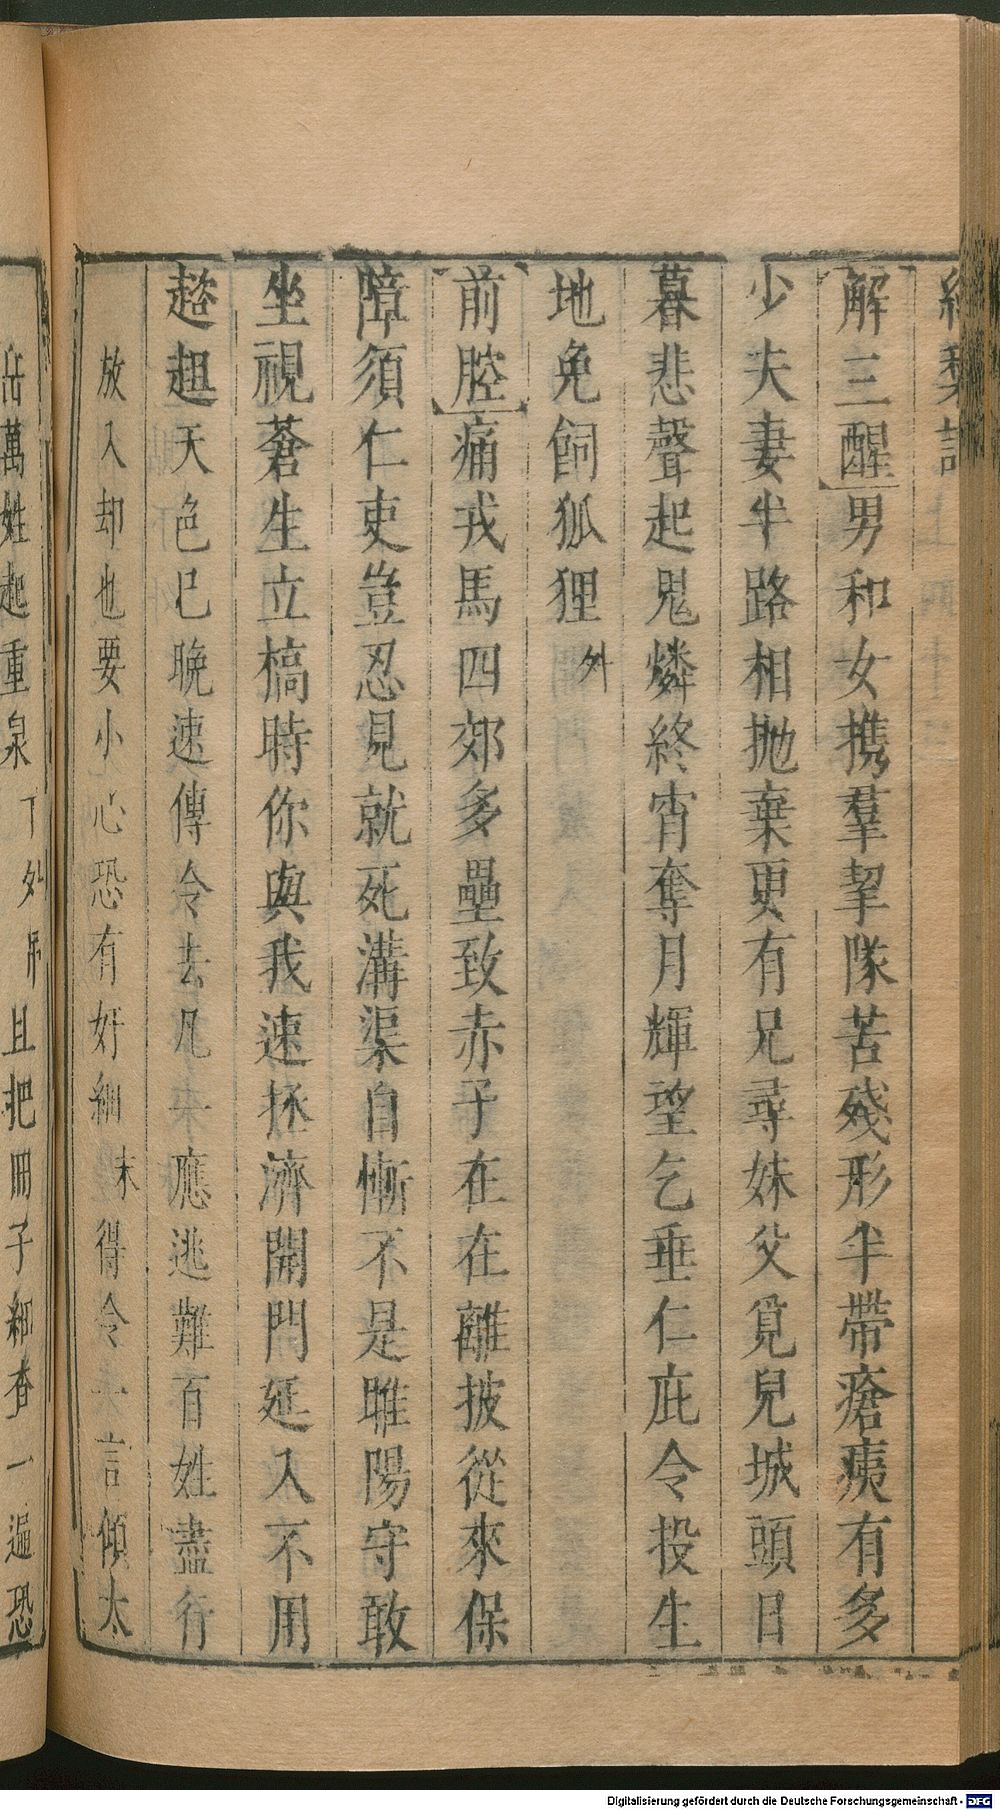 解三酲男和女携羣挈隊苦殘形半帶瘡痍有多
少夫妻半路相抛棄更有兄尋妹父覓兒城頭日
暮悲聲起鬼燐終宵奪月輝望乞垂仁庇令投生
地免飼狐狸外
前腔痛戎馬四郊多壘致赤子在在離披從來保
障須仁吏豈忍見就死溝渠自慚不是睢陽守敢
坐視蒼生立槁時你與我速拯濟開門延入不用
趑趄天色已晚速傳令去凡來應逃難百姓盡行
放入却也要小心恐有奸細末得令 言傾太
岳萬姓起重泉下外吊且把冊子細查一遍恐
Digitalisierung gefördert durch die Deutsche Forschungsgemeinschaft - DFG